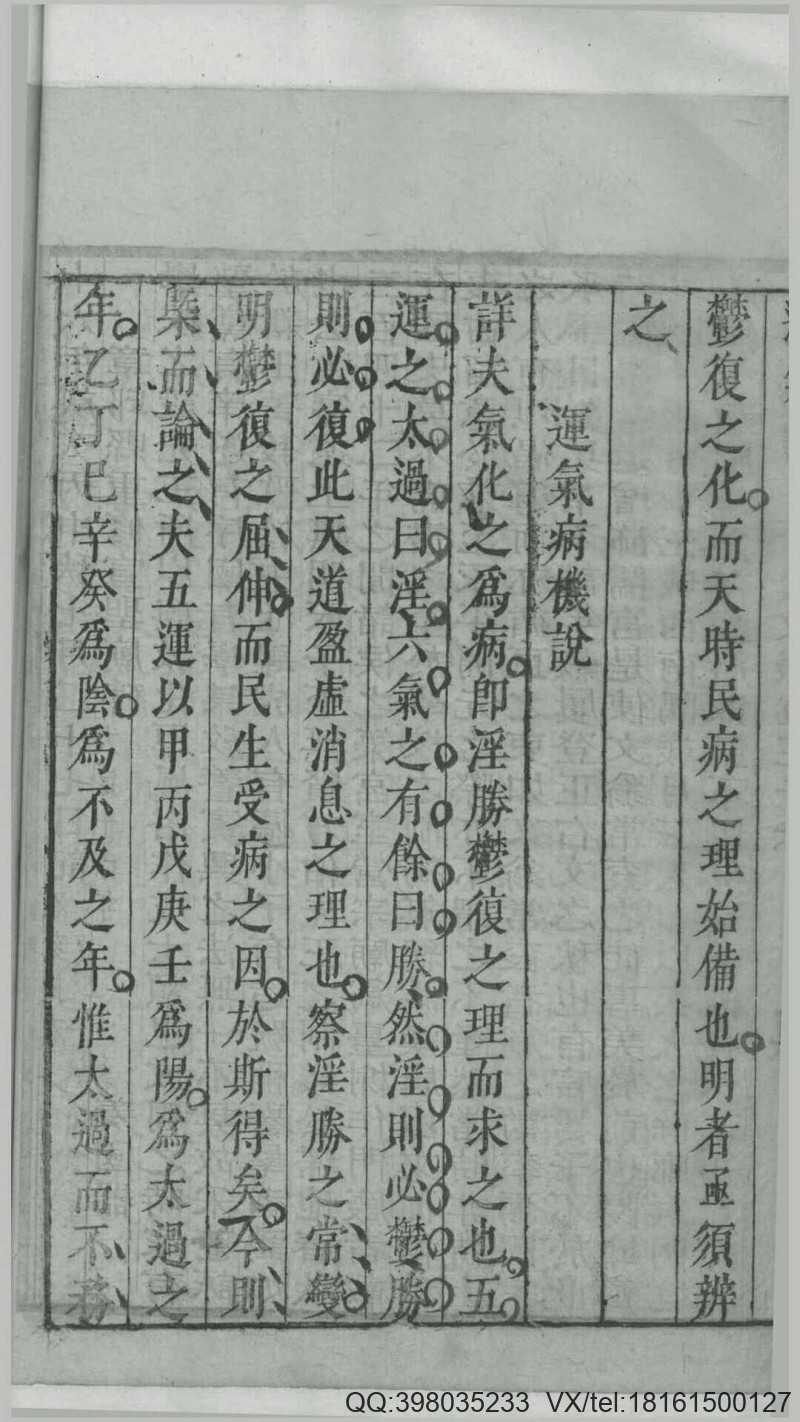 鬱復之化而天時民病之理始備也明者亟須辨
之
運氣病機說
詳夫氣化之爲病卽淫勝鬱復之理而求之也五
運之太過曰淫六氣之有餘曰勝然淫則必鬱勝
則必復此天道盈虛消息之理也察淫勝之常變
明鬱復之屈伸而民生受病之因於斯得矣今則
槩而論之夫五運以甲丙戊庚壬爲陽爲太過之
年乙丁巳辛癸爲陰爲不及之年惟太過而不務
QQ:398035233 VX/tel:18161500127